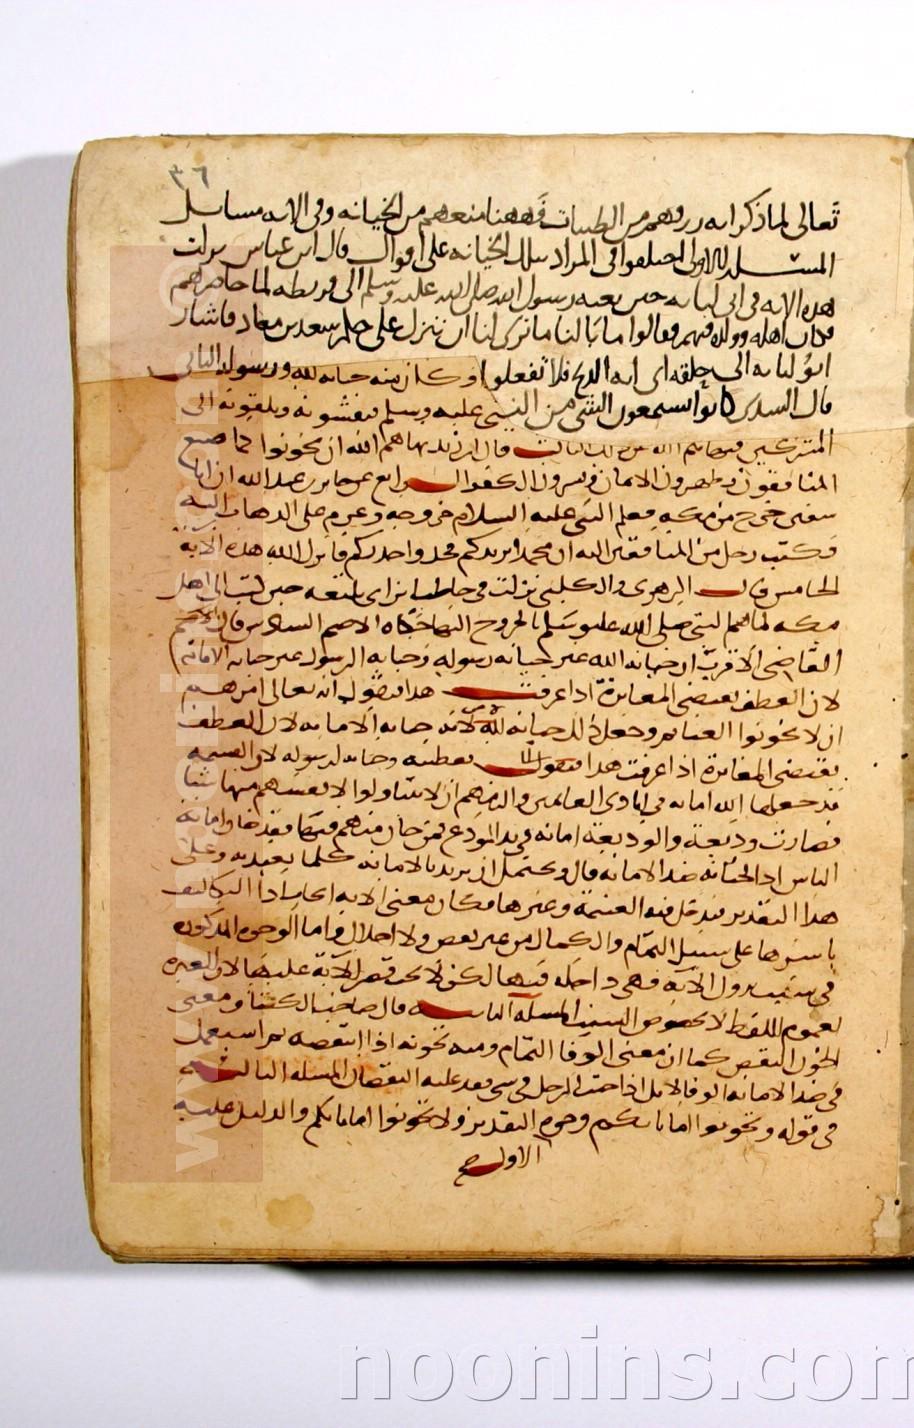 ٣٦
تعالى لما ذكر انه رزقهم من الطيبات فههنا منعهم من الخيانه وفي الايه مسايل
المسئله الاولى اختلفوا في المراد بتلك الخيانه على اقوال قال ابن عباس نزلت
هذه الايه في ابي لبابه حين بعثه رسول الله صلى الله عليه وسلم الى قريظه لما حاصرهم
وكان اهله وولده فيهم فقالوا يا بالبابه ما ترى لنا ان ننزل على حكم سعد بن معاذ فاشار
ابو لبابه الى حلقه اي انه الذبح فلا تفعلوا وكان منه خيانه لله ورسوله الثاني
قال السدي كانوا يسمعون الشي من النبي عليه وسلم فيفشونه ويلقونه الى
المشركين فنهاهم الله عن ذلك الثالث قال ابن زيد نهاهم الله ان يخونوا كما صنع
المنافقون يظهرون الايمان ويسرون الكفر الرابع عن جابر بن عبد الله ان ابا
سفين خرج من مكه فعلم النبي عليه السلام خروجه وعزم على الذهاب اليه
فكتب رجل من المنافقين اليه ان محمدا يريدكم فخذوا حذركم فانزل الله هذه الاية
الخامس قال الزهري والكلبي نزلت في حاطب بن ابي بلتعه حين كتب الى اهل
مكه لما هم النبي صلى الله عليه وسلم بالخروج اليها حكاه الاصم السادس قال
القاضي الاقرب ان خيانه الله غير خيانه رسوله وخيانه الرسول غير خيانه الامانه
لان العطف يقتضي المغايرة اذا عرفت هذا فنقول انه تعالى امرهم
ان لا يخونوا الغنايم وجعل ذلك خيانه لله لانه خيانه الامانه لان العطف
يقتضي المغايرة اذا عرفت هذا فنقول لعطيته وخيانه لرسوله لان القسمه
قد جعلها الله امانه في ايادي الغانمين والزمهم ان لا يتناولوا لانفسهم منها شيئا
فصارت وديعة والوديعة امانه في يد المودع فمن خان منهم فيها فقد خان امانة
الناس اذ الخيانه ضد الامانه قال ويحتمل ان يريد بالامانه كلما تعبد به وعلى
هذا التقدير فيدخل فيه الغنيمة وغيرها فكان معنى الايه ايجاب اداء التكاليف
باسرها على سبيل التمام والكمال من غير نقص ولا اخلال واما الوجوه المذكوره
في سبب نزول الاية فهي داخله فيها لكن لا يجب قصر الاية عليها لان العبره
بعموم اللفظ لا بخصوص السبب المسئلة الثانيه قال صاحب الكشاف ومعنى
الخون النقص كما ان معنى الوفا التمام ومنه تخونه اذا انتقصه ثم استعمل
في ضد الامانه الوفا لانك اذا خنت الرجل في شي فقد ادخلت عليه النقصان المسئله الثالثه
في قوله وتخونوا اماناتكم وجوه التقدير ولا تخونوا اماناتكم والدليل عليه
الاول
www.noonins.com
noonins.com